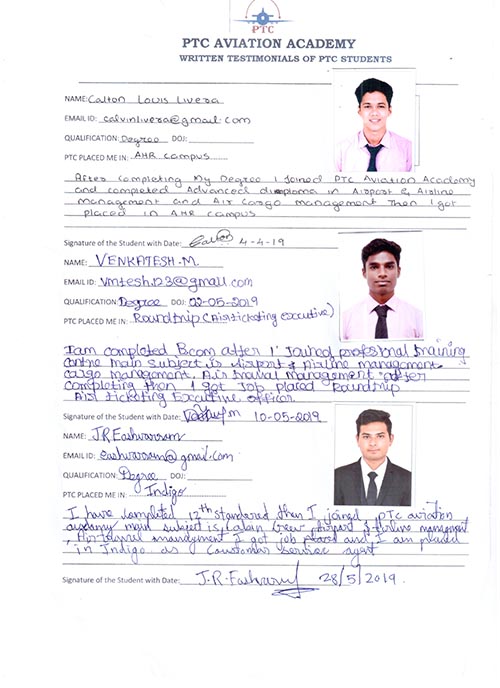 PTC
PTC AVIATION ACADEMY
WRITTEN TESTIMONIALS OF PTC STUDENTS
NAME: Calton Louis Livera
EMAIL ID: calvinlivera@gmail.com
QUALIFICATION: Degree DOJ:
PTC PLACED ME IN: AHR campus
After completing My Degree I joined PTC Aviation Academy
and completed Advanced diploma in Airport & Airline
management and Air Cargo management Then I got
placed in AHR campus
Signature of the Student with Date: Calton 4-4-19
NAME: VENKATESH.M.
EMAIL ID: vmtesh123@gmail.com
QUALIFICATION: Degree DOJ: 02-05-2019
PTC PLACED ME IN: Roundtrip (Air ticketing executive)
I am completed B.com after I Joined profesional training
centre main subject is Airport & Airline management
cargo management, Air travel management after
completing then I got Job placed Roundtrip
Air ticketing Executive officer.
Signature of the Student with Date: 10-05-2019
NAME: J.R Eashwaram
EMAIL ID: eashwaram@gmail.com
QUALIFICATION: Degree DOJ:
PTC PLACED ME IN: Indigo
I have completed 12th standared then I joined PTC aviation
academy main subject is cabin crew, Airport & Airline management
, management I got job placed and I am placed
in Indigo as Coustomer service agent
Signature of the Student with Date: J.R. 28/5/2019.